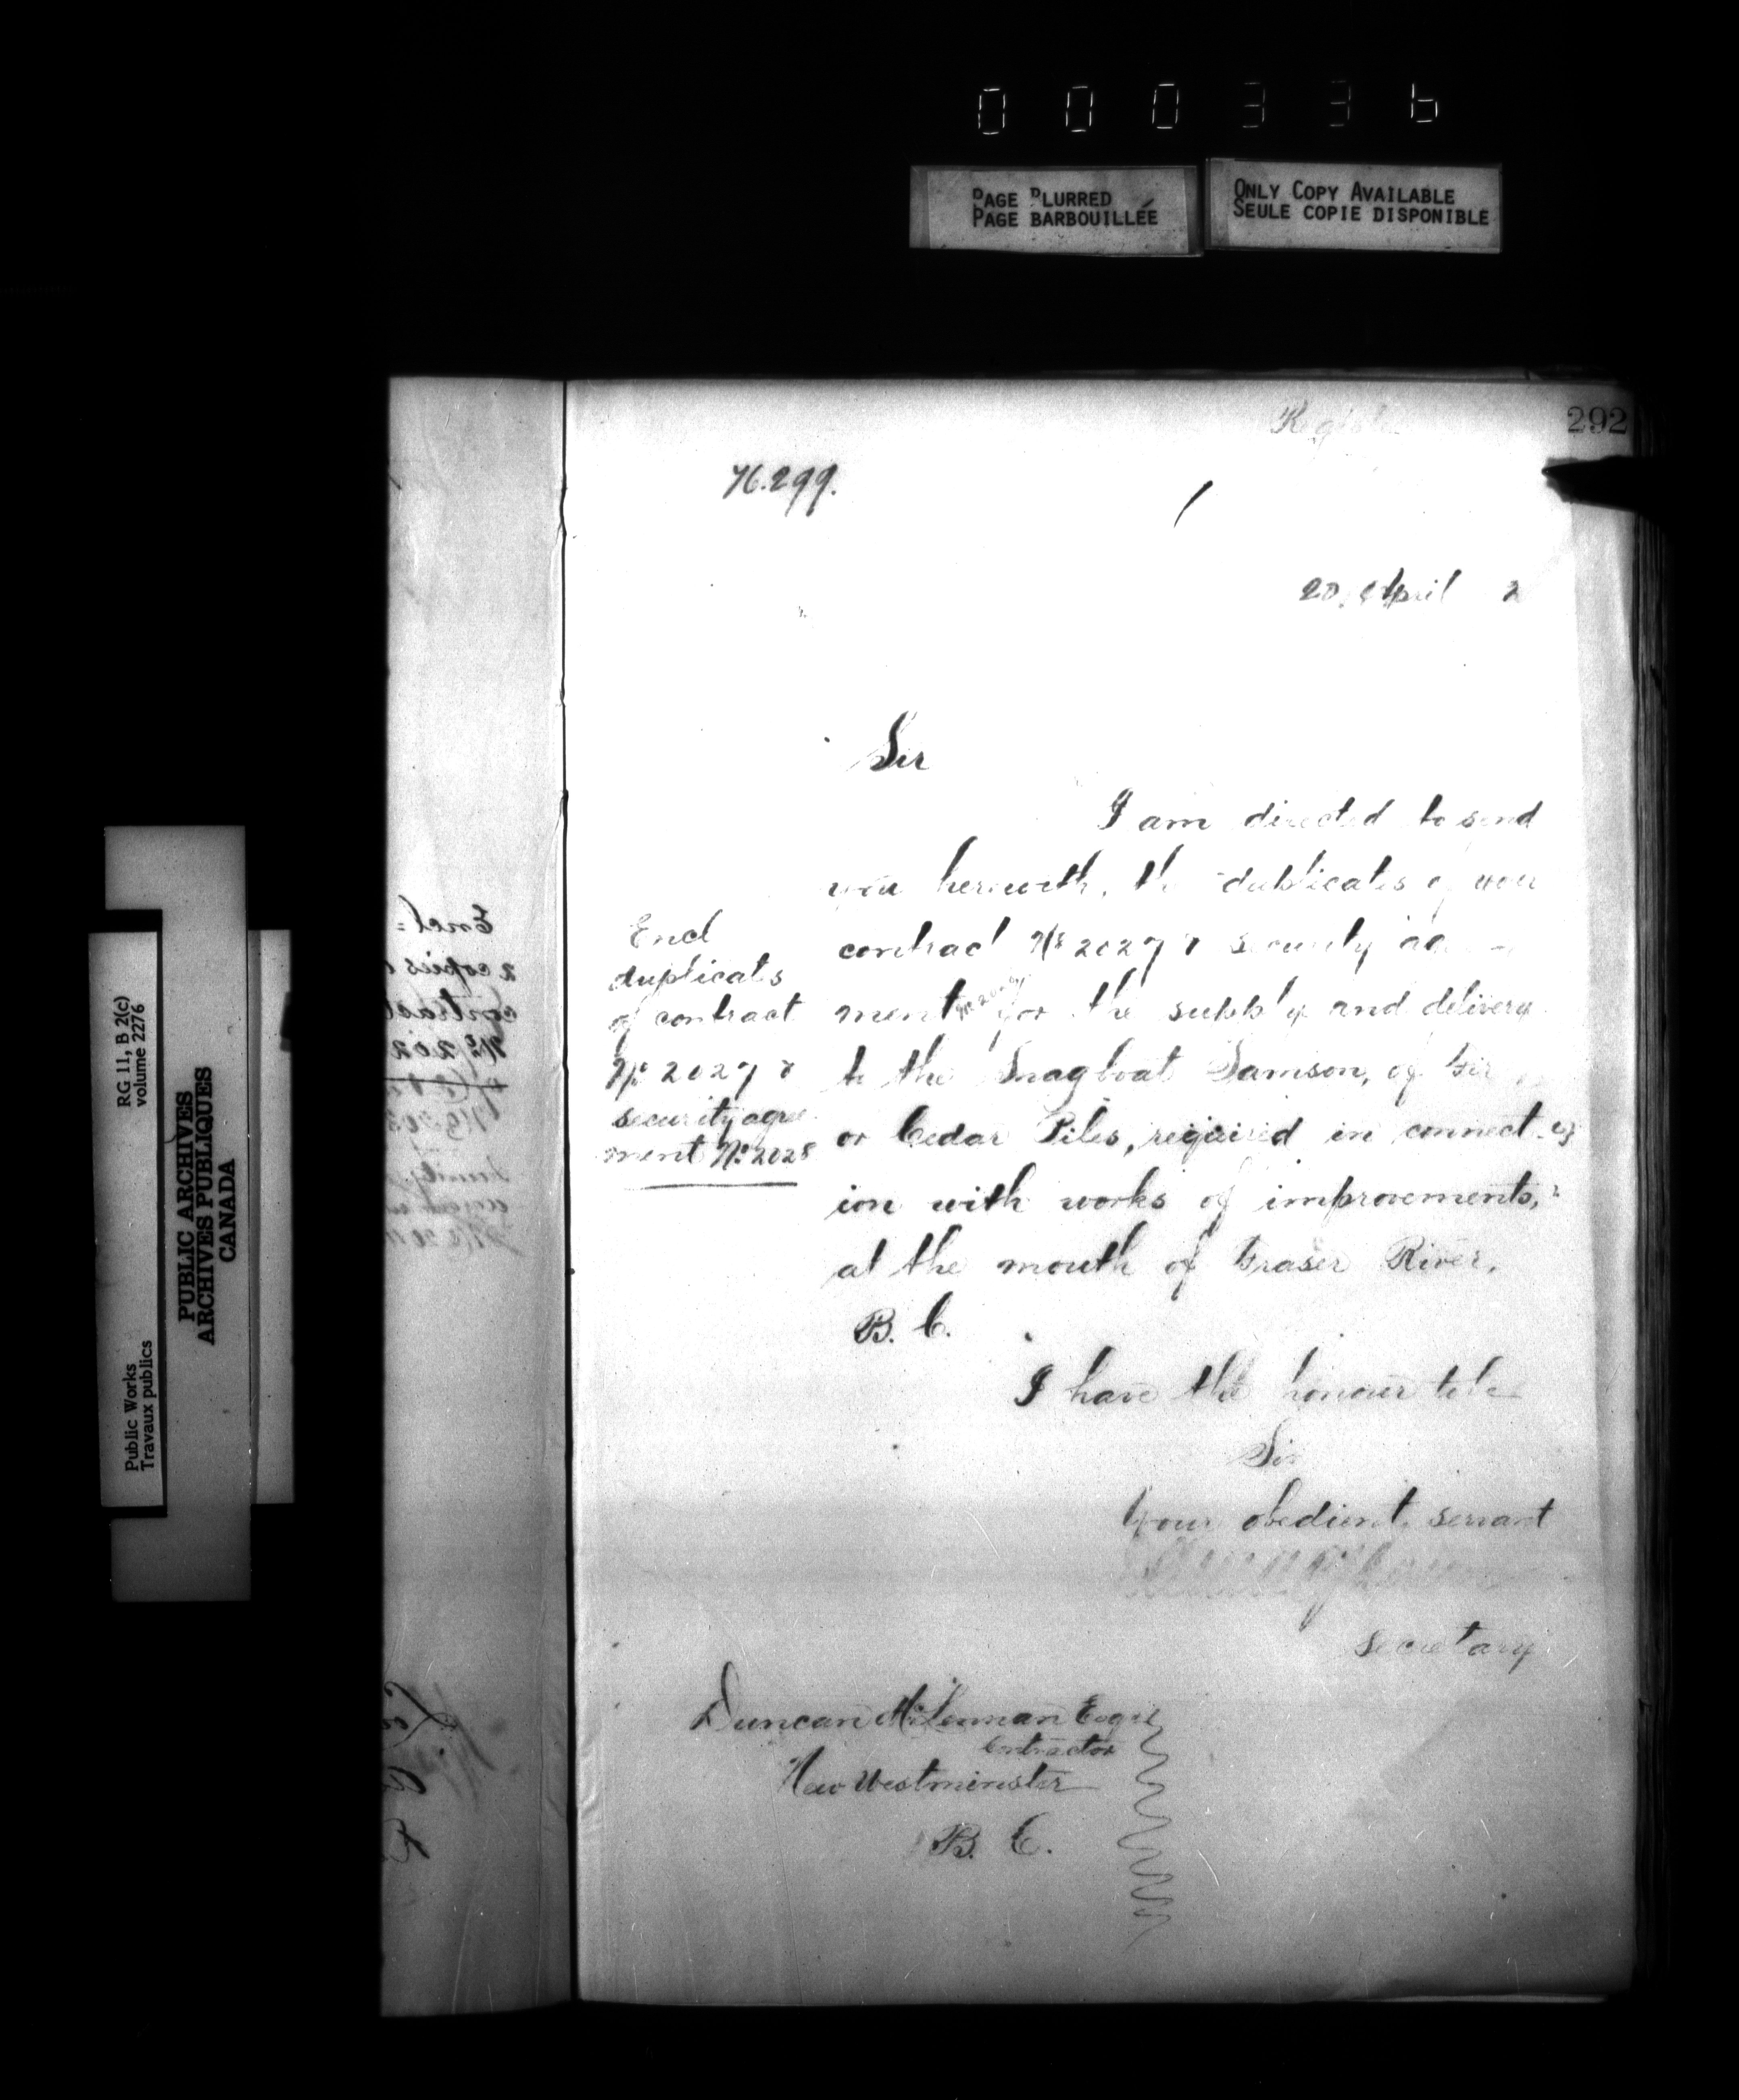 000336
PAGE BLURRED
PAGE BARBOUILLÉE
ONLY COPY AVAILABLE
SEULE COPIE DISPONIBLE
292
76.299.
20, April 2
Sir
I am directed to send
you herewith, the duplicates of your
contract No 2027 &amp; security
ment for the supply and delivery
to the Snagboat Samson, of Fir
or Cedar Piles, required in connect
ion with works of improvements,
at the mouth of Fraser River,
B. C.
I have the honour to be
Sir
Your obedient servant
secretary
Encl
duplicates
of contract
No 2027 &amp;
security agree
ment No 2028
Duncan McLennan Esqre
Contractor
New Westminster
B. C.
Encl =
2 copies
contract
No 202
RG 11, B 2(c)
volume 2276
PUBLIC ARCHIVES
ARCHIVES PUBLIQUES
CANADA
Public Works
Travaux publics